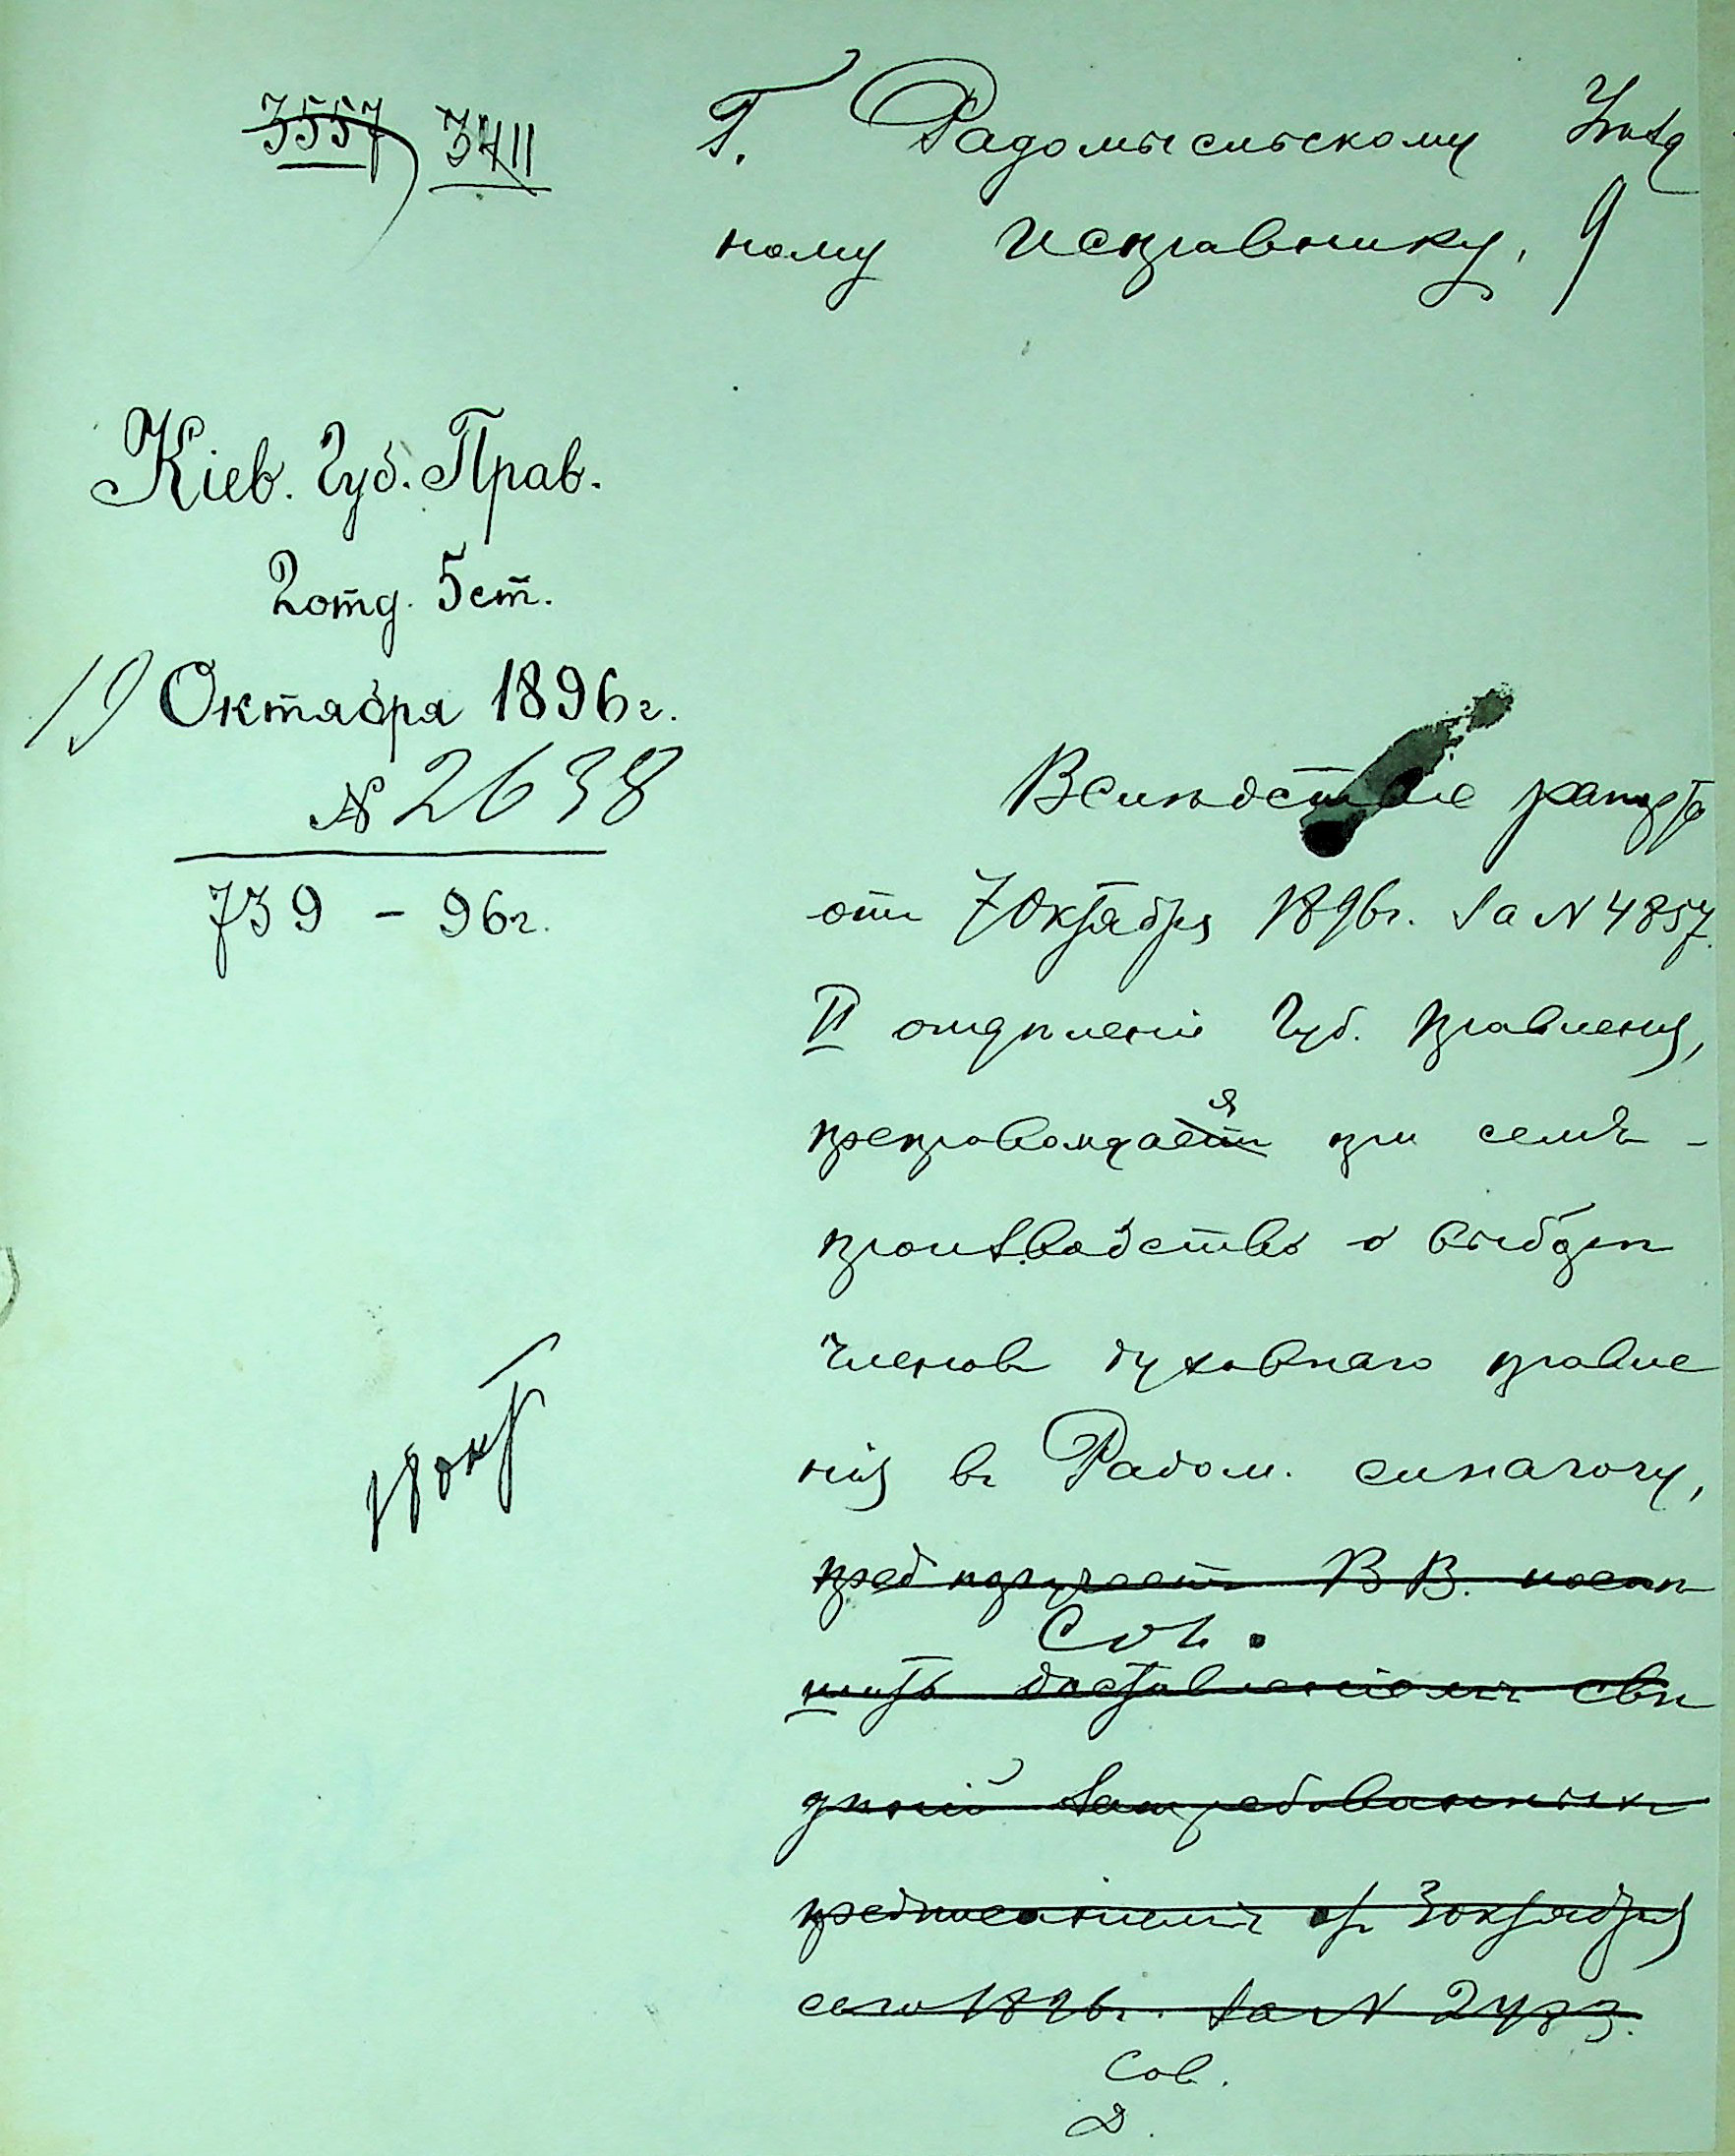 3557 3411
Г. Радомысльскому Уѣзд
ному Исправнику.
9
Кіев. Губ. Прав.
2 отд. 5 ст.
19 Октября 1896 г.
№ 2638
739 – 96 г.
Вслѣдствіе рапорта
отъ 7 Октября 1896 г. за № 4857
II отдѣленіе Губ. Правленія,
я
препровождаетъ при семъ -
производство о выборѣ
членовъ духовнаго правле
нія въ Радом. синагогу,
18 окт
предпоручаетъ В В. поспѣ
Сов.
шить доставленіемъ свѣ
дѣній затребованныхъ
предписаніемъ отъ 3 октября
сего 1896 г. за № 2483.
Сов.